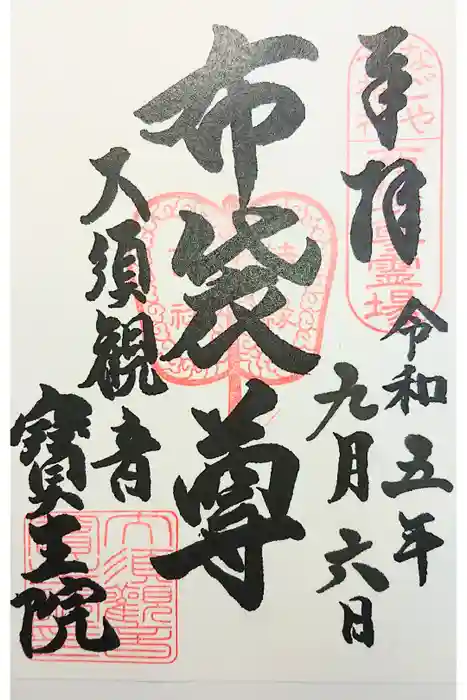 奉拝
令和五年
九月六日
布袋尊
大須観音
寶生院
大須觀音